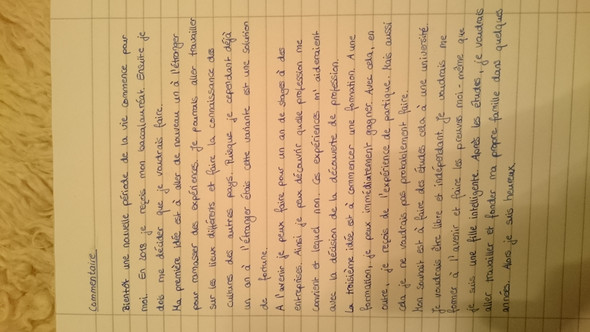 Commentaire
Bientôt une nouvelle période de la vie commence pour
moi. En 2013 je reçois mon baccalauréat. Ensuite je
dois me décider que je voudrais faire.
Ma première idée est à aller de nouveau un à l'étranger
pour ramasser des expériences. Je pourrais aller travailler
sur les lieux différents et faire la connaissance des
cultures des autres pays. Puisque je cependant déjà
un an à l'étranger étais cette variante est une solution
de fortune.
A l'avenir je peux faire pour un an de stages à des
entreprises. Ainsi je peux découvrir quelle profession me
convient et laquel non. Ces expériences m'aideraient
avec la décision de la découverte de profession.
La troisième idée est à commencer une formation. A une
formation, je peux immédiatement gagner. Avec cela, en
outre, je reçois de l'expérience de partique. Mais aussi
cela je ne voudrais pas probablement faire.
Mon souhait est à faire des études cela à une université.
Je voudrais être libre et indépendant. Je voudrais me
former à l'avenir et faire les preuves moi-même que
je suis une fille intelligente. Après les études, je voudrais
aller travailler et fonder ma propre famille dans quelques
années. Alors je suis heureux.